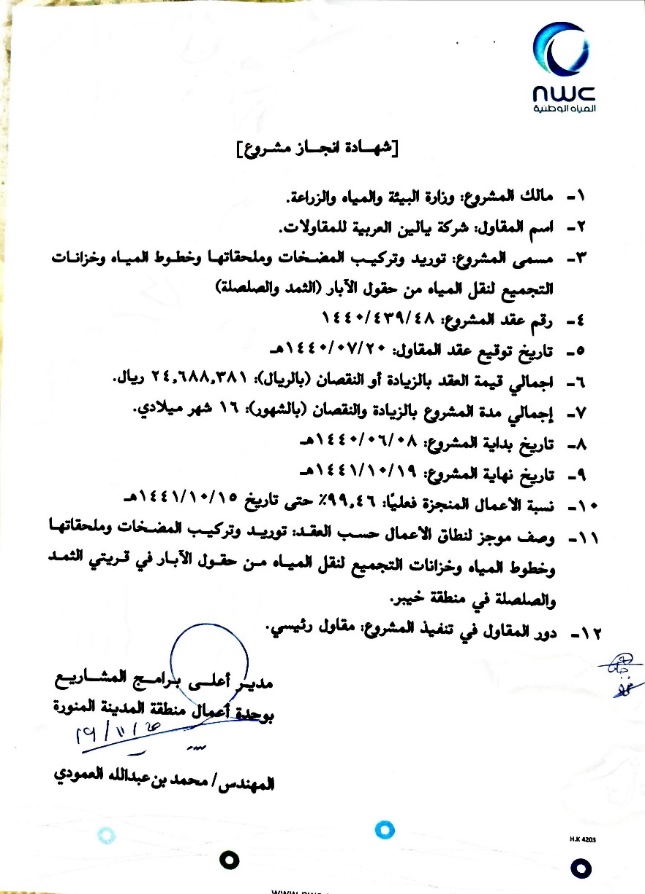 nwc
المياه الوطنية
[شهادة انجاز مشروع]
١- مالك المشروع: وزارة البيئة والمياه والزراعة.
٢- اسم المقاول: شركة يالين العربية للمقاولات.
٣- مسمى المشروع: توريد وتركيب المضخات وملحقاتها وخطوط المياه وخزانات
التجميع لنقل المياه من حقول الآبار (الثمد والصلصلة)
٤- رقم عقد المشروع: ١٤٤٠/٤٣٩/٤٨
٥- تاريخ توقيع عقد المقاول: ١٤٤٠/٠٧/٢٠هـ
٦- اجمالي قيمة العقد بالزيادة أو النقصان (بالريال): ٢٤,٦٨٨,٣٨١ ريال.
٧- إجمالي مدة المشروع بالزيادة والنقصان (بالشهور): ١٦ شهر ميلادي.
٨- تاريخ بداية المشروع: ١٤٤٠/٠٦/٠٨هـ
٩- تاريخ نهاية المشروع: ١٤٤١/١٠/١٩هـ
١٠- نسبة الاعمال المنجزة فعليًا: ٩٩,٤٦٪ حتى تاريخ ١٤٤١/١٠/١٥هـ
١١- وصف موجز لنطاق الاعمال حسب العقد: توريد وتركيب المضخات وملحقاتها
وخطوط المياه وخزانات التجميع لنقل المياه من حقول الآبار في قريتي الثمد
والصلصلة في منطقة خيبر.
١٢- دور المقاول في تنفيذ المشروع: مقاول رئيسي.
مدير أعلى برامج المشاريع
بوحدة أعمال منطقة المدينة المنورة
المهندس/ محمد بن عبدالله العمودي
H.K 4203